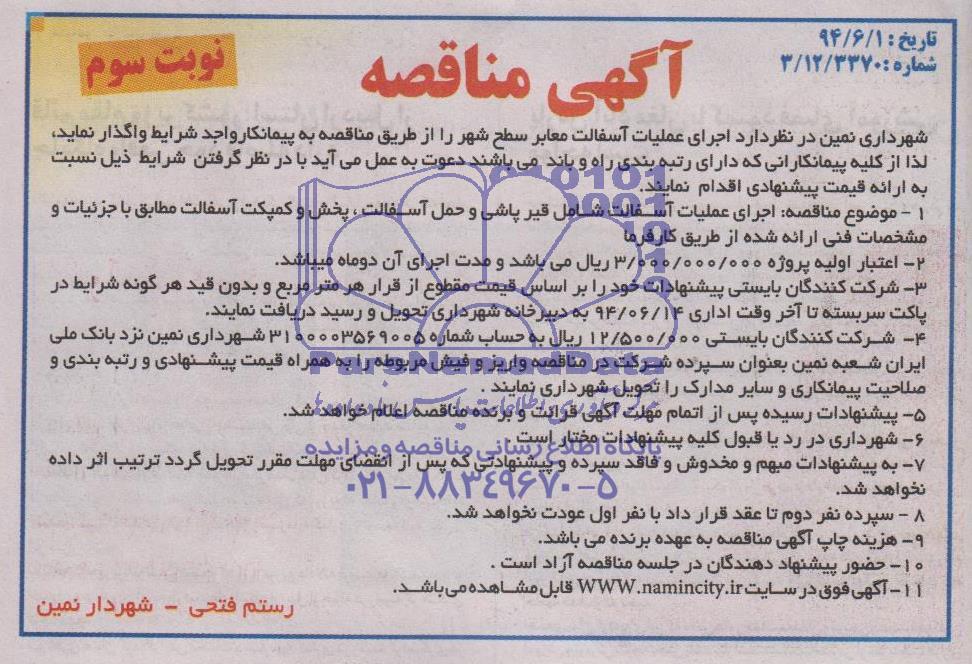 تاریخ: ۹۴/۶/۱
شماره: ۳/۱۲/۳۳۷۰
آگهی مناقصه
نوبت سوم
شهرداری نمین در نظردارد اجرای عملیات آسفالت معابر سطح شهر را از طریق مناقصه به پیمانکار واجد شرایط واگذار نماید،
لذا از کلیه پیمانکارانی که دارای رتبه بندی راه و باند می باشند دعوت به عمل می آید با در نظر گرفتن شرایط ذیل نسبت
به ارائه قیمت پیشنهادی اقدام نمایند.
۱ - موضوع مناقصه: اجرای عملیات آسفالت شامل قیر پاشی و حمل آسفالت ، پخش و کمپکت آسفالت مطابق با جزئیات و
مشخصات فنی ارائه شده از طریق کارفرما
۲- اعتبار اولیه پروژه ۳/۰۰۰/۰۰۰/۰۰۰ ریال می باشد و مدت اجرای آن دوماه میباشد.
۳- شرکت کنندگان بایستی پیشنهادات خود را بر اساس قیمت مقطوع از قرار هر متر مربع و بدون قید هر گونه شرایط در
پاکت سربسته تا آخر وقت اداری ۹۴/۰۶/۱۴ به دبیرخانه شهرداری تحویل و رسید دریافت نمایند.
۴- شرکت کنندگان بایستی ۱۲/۵۰۰/۰۰۰ ریال به حساب شماره ۳۱۰۰۰۰۳۵۶۹۰۰۵ شهرداری نمین نزد بانک ملی
ایران شعبه نمین بعنوان سپرده شرکت در مناقصه واریز و فیش مربوطه را به همراه قیمت پیشنهادی و رتبه بندی و
صلاحیت پیمانکاری و سایر مدارک را تحویل شهرداری نمایند .
۵- پیشنهادات رسیده پس از اتمام مهلت آگهی قرائت و برنده مناقصه اعلام خواهد شد.
۶- شهرداری در رد یا قبول کلیه پیشنهادات مختار است .
۷- به پیشنهادات مبهم و مخدوش و فاقد سپرده و پیشنهادتی که پس از انقضای مهلت مقرر تحویل گردد ترتیب اثر داده
نخواهد شد.
۸ - سپرده نفر دوم تا عقد قرار داد با نفر اول عودت نخواهد شد.
۹- هزینه چاپ آگهی مناقصه به عهده برنده می باشد.
۱۰- حضور پیشنهاد دهندگان در جلسه مناقصه آزاد است .
۱۱- آگهی فوق در سایت WWW.namincity.ir قابل مشاهده می باشد.
رستم فتحی - شهردار نمین
پایگاه اطلاع رسانی مناقصه و مزایده
۰۲۱-۸۸۳۴۹۶۷۰-۵